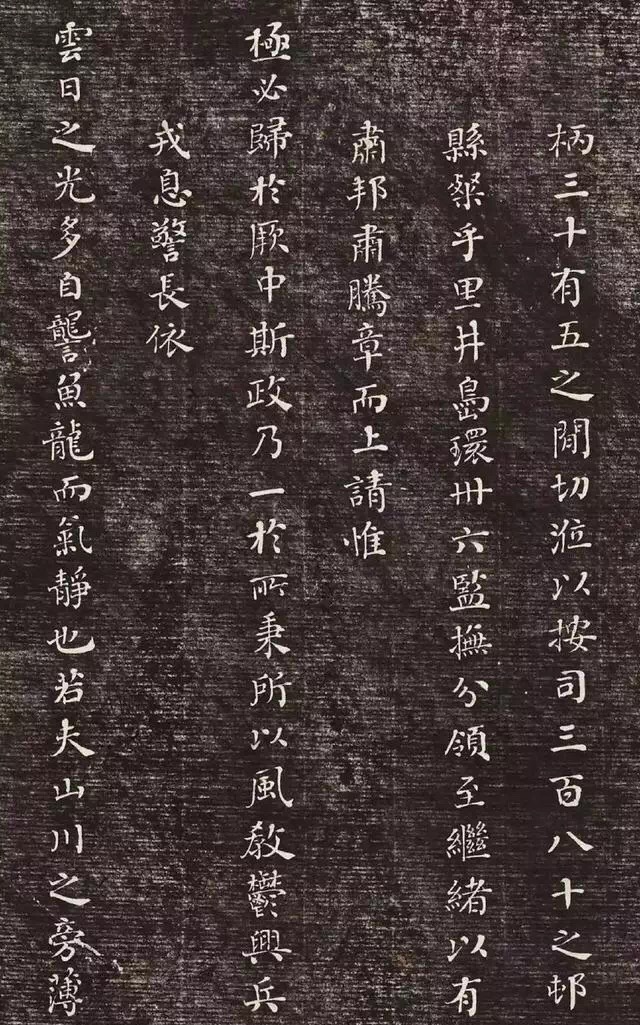 柄三十有五之間切涖以按司三百八十之邨
縣乎里井島環卅六監撫分領至繼緒以有
肅邦肅騰章而上請惟
極必歸於厥中斯政乃一於所秉所以風教鬱興兵
戎息警長依
雲日之光多自讋魚龍而氣靜也若夫山川之旁薄